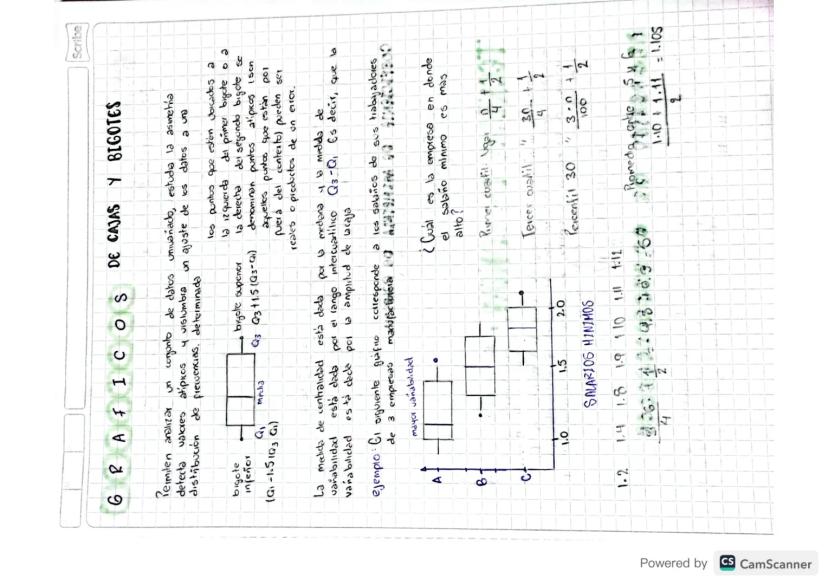 Scribe
GRAFICOS DE CAJAS Y BIGOTES
Permiten analizar un conjunto de datos univariado, estudia la asimetria
detecta valores atipicos y vislumbra un ajuste de los datos a una
distribución de frecuencias determinada
bigote
inferior
(Q1 -1.5 (Q3 Q1)
Q1
media
Q3
bigote superior
Q3 +1.5 (Q3-Q1)
los puntos que estan ubicados a
la izquierda del primer bigote o a
la derecha del segundo bigote se
denominan puntos atipicos (son
aquellos puntos que estan por
fuera del contexto) pueden ser
reales o productos de un error.
La medida de centralidad está dada por la mediana y la medida de
variabilidad está dada por el rango intercuartilico Q3-Q1 Es decir, que la
variabilidad está dada por la amplitud de la caja
ejemplo: El siguiente gráfico corresponde a los salarios de sus trabajadores
de 3 empresas manufacturera
mayor variabilidad
A
B
C
1.0 1.5 2.0
SALARIOS MINIMOS
¿Cual es la empresa en donde
el salario minimo es mas
alto?
Primer cuartil n/4 + 1/2
Tercer cuartil " 3n/4 + 1/2
Percentil 30 " 3·n/100 + 1/2
1.2 1.4 1.8 1.9 1.10 1.11 1.12
1.10 + 1.11 / 2 = 1.105
Powered by CS CamScanner